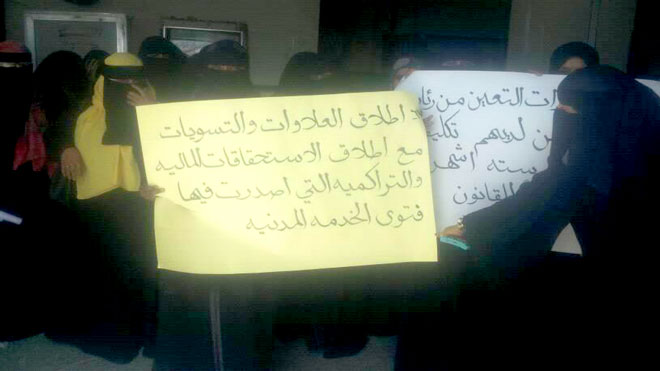 اطلاق العلاوات والتسويات
مع اطلاق الاستحقاقات الماليه
والتراكميه التي اصدرت فيها
فتوى الخدمه المدنيه
رات التعين من
لديهم
سته اشهر
للقانون